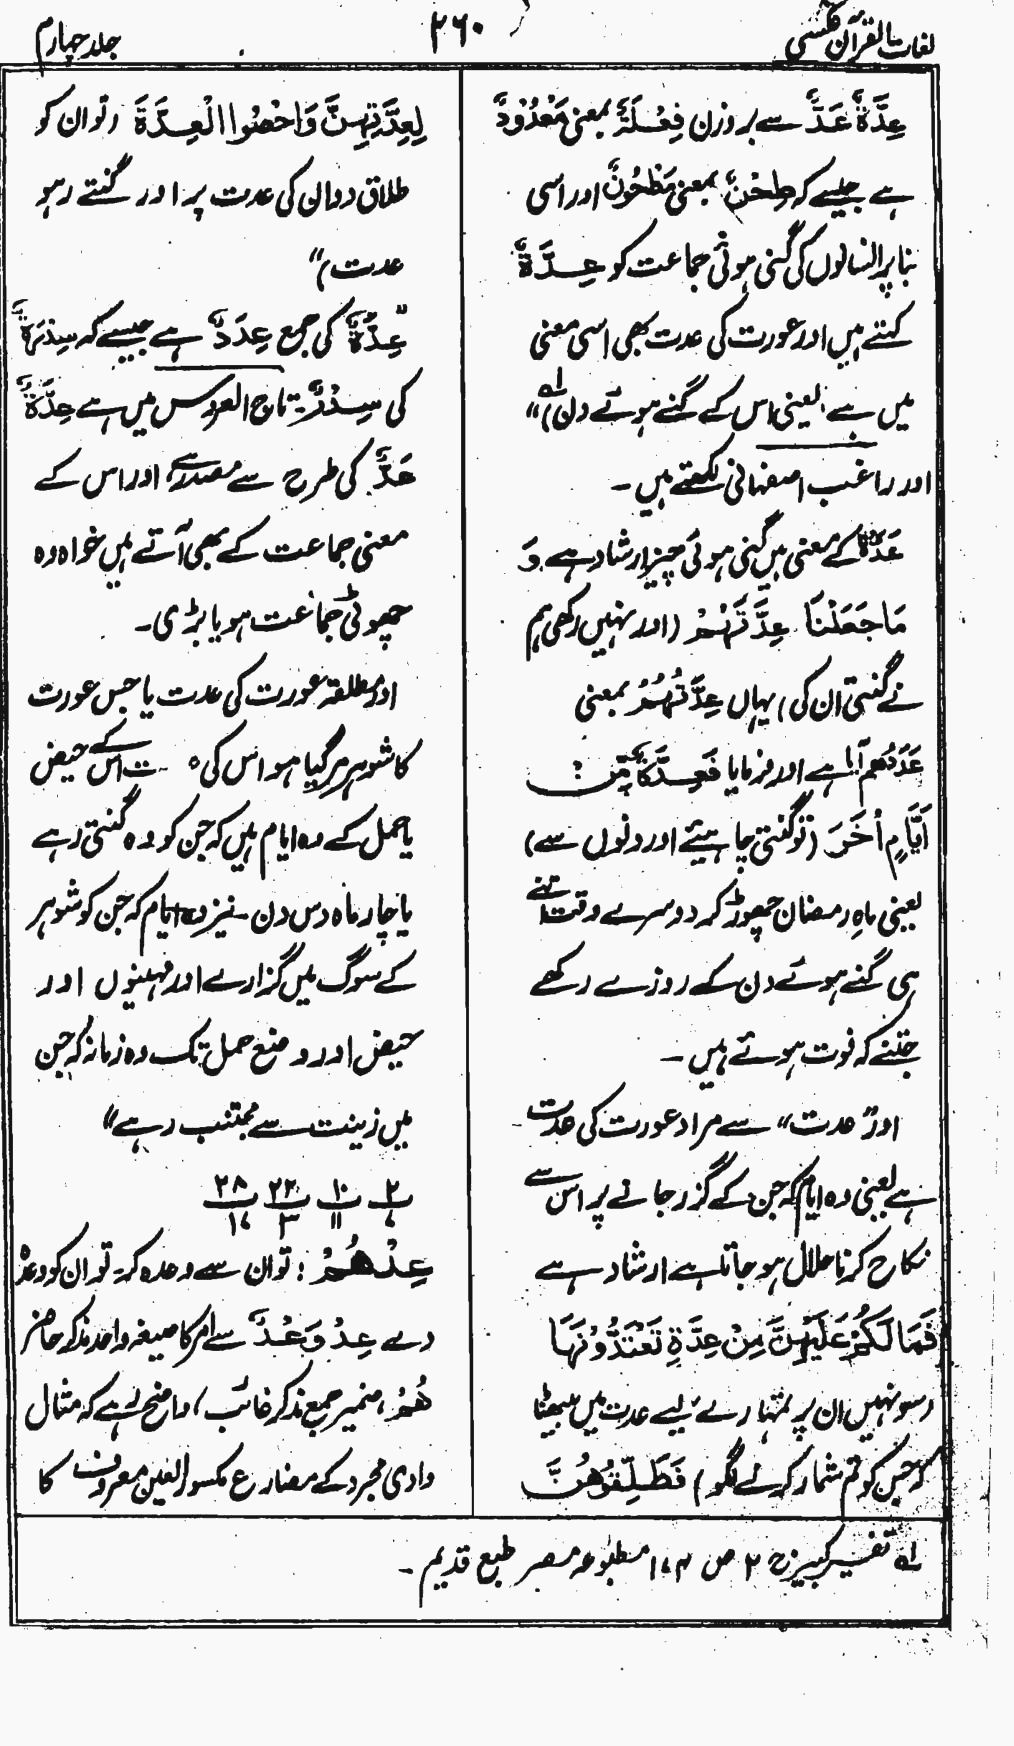 لغات القرآن عکسی
۲۶۰
جلد چہارم
عِدَّةٌ عَدٌّ سے بر وزن فِعْلَةٌ بمعنی مَعْدُوْدٌ
ہے جیسے کہ طِحْنٌ بمعنی مَطْحُوْنٌ اور اسی
بنا پر انسانوں کی گنی ہوئی جماعت کو عِدَّةٌ
کہتے ہیں اور عورت کی عدت بھی اسی معنی
میں ہے یعنی اس کے گنے ہوئے دن) لہ"
اور راغب اصفہانی لکھتے ہیں۔
عَدَّةٌ کے معنی ہیں گنی ہوئی چیز ارشاد ہے وَ
مَا جَعَلْنَا عِدَّتَهُمْ (اور نہیں رکھی ہم
نے گنتی ان کی) یہاں عِدَّتُهُمْ بمعنی
عَدَدُهُم آیا ہے اور فرمایا فَعِدَّةٌ مِّنْ
اَيَّامٍ اُخَرَ (تو گنتی چاہیئے اور دنوں سے)
یعنی ماہِ رمضان چھوڑ کر دوسرے وقت اتنے
ہی گنے ہوئے دن کے روزے رکھے
جتنے کہ فوت ہوئے ہیں۔
اور "عدت" سے مراد عورت کی عدت
ہے یعنی وہ ایام کہ جن کے گزر جانے پر اس سے
نکاح کرنا حلال ہو جاتا ہے ارشاد ہے
فَمَا لَكُمْ عَلَيْهِنَّ مِنْ عِدَّةٍ تَعْتَدُّوْنَهَا
(سو نہیں ان پر تمہارے لیے عدت میں بیٹھنا
کہ جس کو تم شمار کرنے لگو) فَطَلِّقُوْهُنَّ
لِعِدَّتِهِنَّ وَاَحْصُوا الْعِدَّةَ (تو ان کو
طلاق دو ان کی عدت پر اور گنتے رہو
عدت)"
"عِدَّةٌ کی جمع عِدَدٌ ہے جیسے کہ سِدْرَةٌ
کی سِدْرٌ۔ تاج العروس میں ہے عِدَّةٌ
عَدٌّ کی طرح سے مصدر ہے اور اس کے
معنی جماعت کے بھی آتے ہیں خواہ وہ
چھوٹی جماعت ہو یا بڑی۔
اور مطلقہ عورت کی عدت یا جس عورت
کا شوہر مر گیا ہو اس کی عدت اس کے حیض
یا حمل کے وہ ایام ہیں کہ جن کو وہ گنتی رہے
یا چار ماہ دس دن۔ نیز وہ ایام کہ جن کو شوہر
کے سوگ میں گزارے اور مہینوں اور
حیض اور وضع حمل تک وہ زمانہ کہ جن
میں زینت سے مجتنب رہے"
۲/۷ ۱۰/۱۱ ۲۲/۳ ۲۸/۱۷
عِدْهُمْ: تو ان سے وعدہ کر۔ تو ان کو وعدہ
دے عِدْ وَعْدٌ سے امر کا صیغہ واحد مذکر حاضر
هُمْ، ضمیر جمع مذکر غائب) واضح رہے کہ مثال
وادی مجرد کے مضارع مکسور العین معروف کا
لہ تفسیر کبیر ج ۲ ص ۱۷۴ مطبوعہ مصر طبع قدیم۔